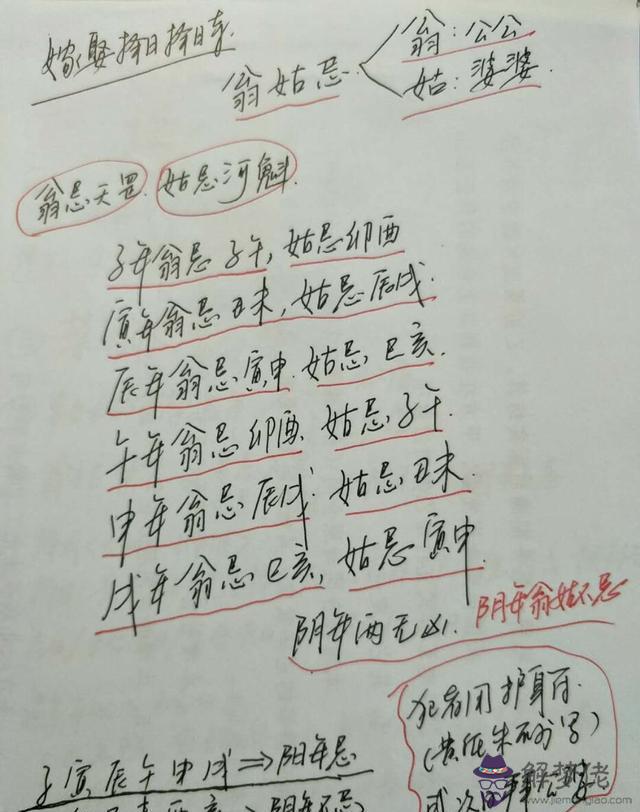 嫁娶择日择日表
翁姑忌
翁:公公
姑:婆婆.
翁忌天罡. 姑忌河魁.
子年翁忌子午,姑忌卯酉
寅年翁忌丑未,姑忌辰戌.
辰年翁忌寅申. 姑忌巳亥.
午年翁忌卯酉. 姑忌子午.
申年翁忌辰戌. 姑忌丑未.
戌年翁忌巳亥, 姑忌寅申.
阴年两无凶. 阴年翁姑不忌
犯者用护身符.
(黄纸朱砂写)
子寅辰午申戌⇒阳年忌
解梦佬
www.jiemenglao.com